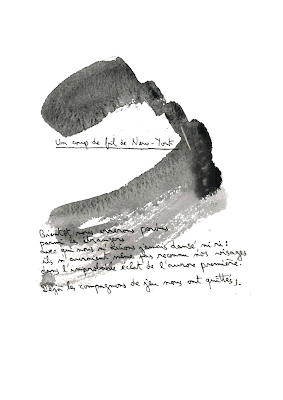 Un coup de fil de New-York
Bientôt nous errerons perdus
parmi la étrangers
avec qui nous n'aurions jamais dansé ni ri :
ils n'auraient même pas reconnu nos visages
dans l'improbable éclat de l'aurore première.
Déjà les compagnons de jeu nous ont quittés.